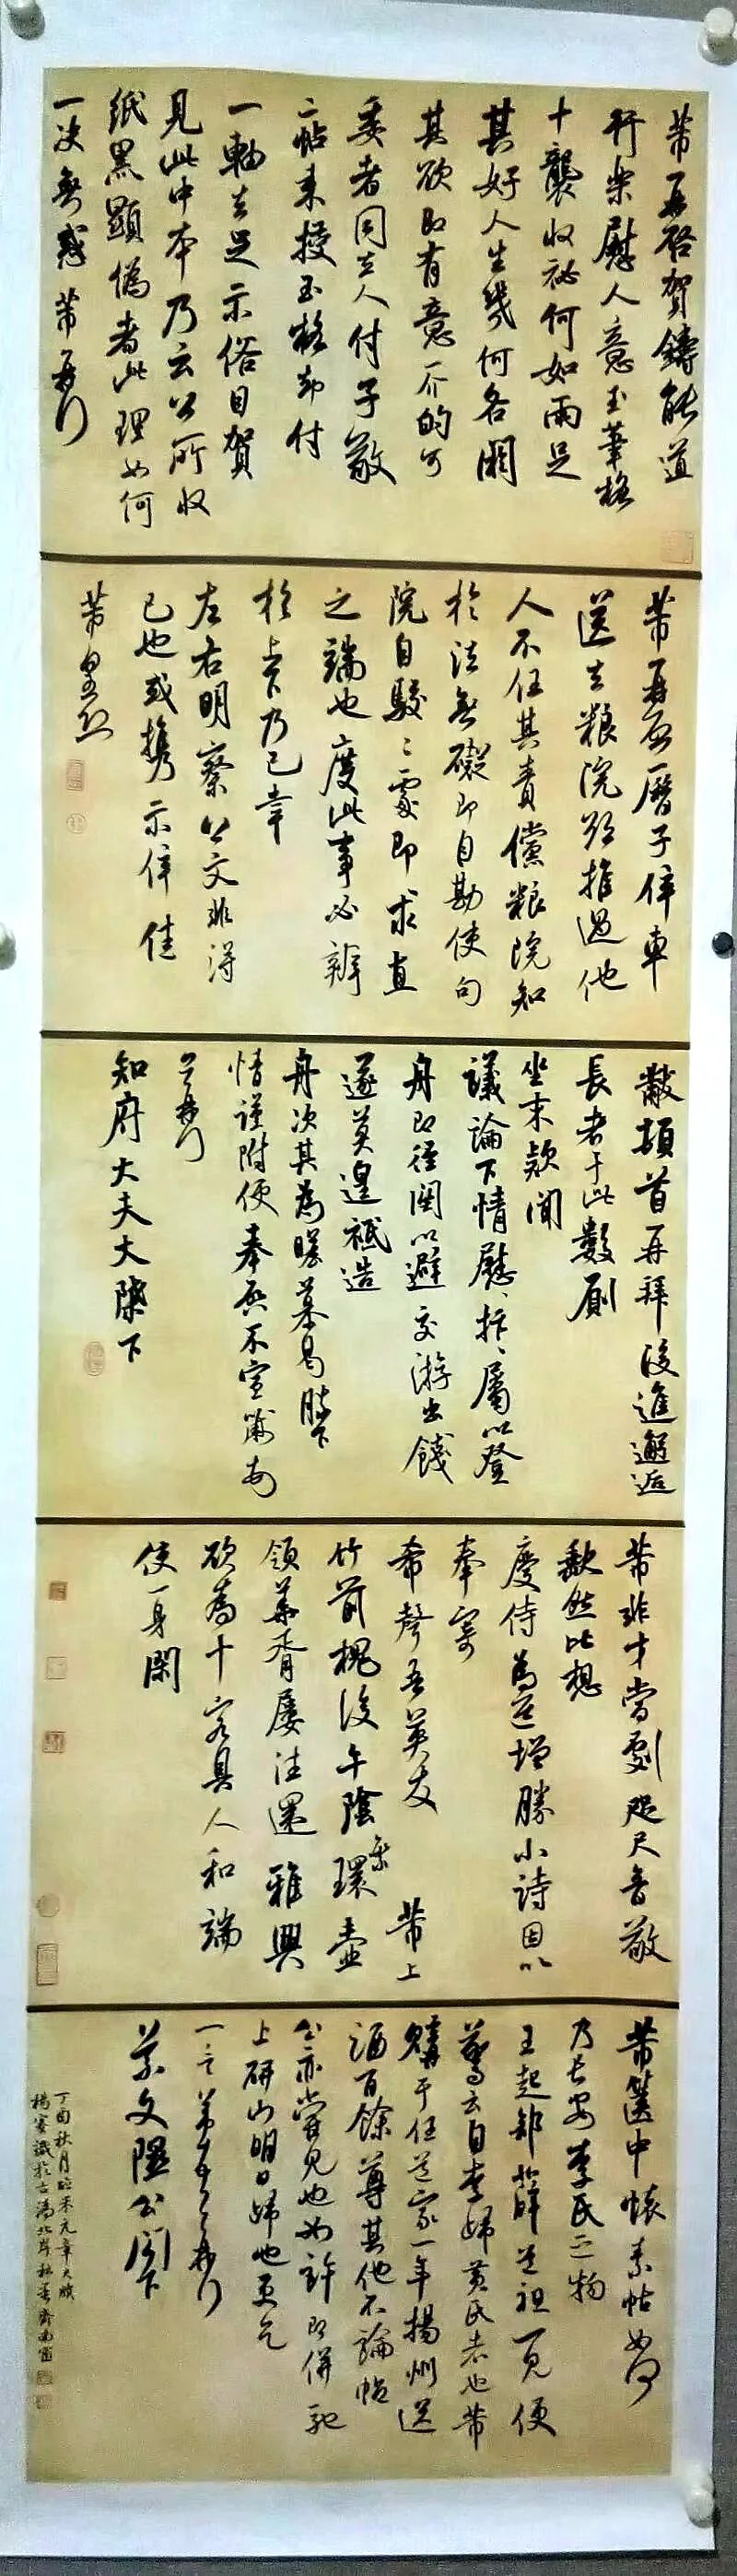 芾再啓賀鑄能道
行樂慰人意玉筆格
十襲收祕何如兩足
其好人生幾何各閼
其欲即有意一介的可
委者同去人付子敬
二帖來授玉格却付
一軸去足示俗目賀
見此中本乃云公所收
紙黑顯偽者此理如何
一決無惑芾再行
芾再啓曆子倅車
送去粮院郄推過他
人不任其責儻粮院知
於法無礙即自勘使句
院自駮駮處即求直
之端也度此事必辦
於上下乃已幸
左右明察公文非得
已也或攜示倅佳
芾皇恐
黻頓首再拜後進邂逅
長者於此數厠
坐末款聞
議論下情慰抃慰抃屬以登
舟即徑關以避交游出餞
遂莫遑祗造
舟次其為曒慕曷勝下
情謹附便奉啓不宣黻再
拜
知府大夫大陛下
芾非才當劇咫尺音敬
歉然比想
慶侍為道增勝小詩因以
奉寄
希聲吾英友 芾上
竹前槐後午陰繁
環壺
領華胥屢往還雅興
欲為十客具人和端
使一身閑
芾篋中懷素帖如何
乃長安李氏之物
王起部薛道祖一見便
驚云自李歸黃氏者也芾
購于任道家一年揚州送
酒百餘尊其他不論帖
公亦嘗見也如許即併馳
上研山明日歸也更乞
一言芾頓首再拜
景文隰公閤下
丁酉秋月臨米元章大牘